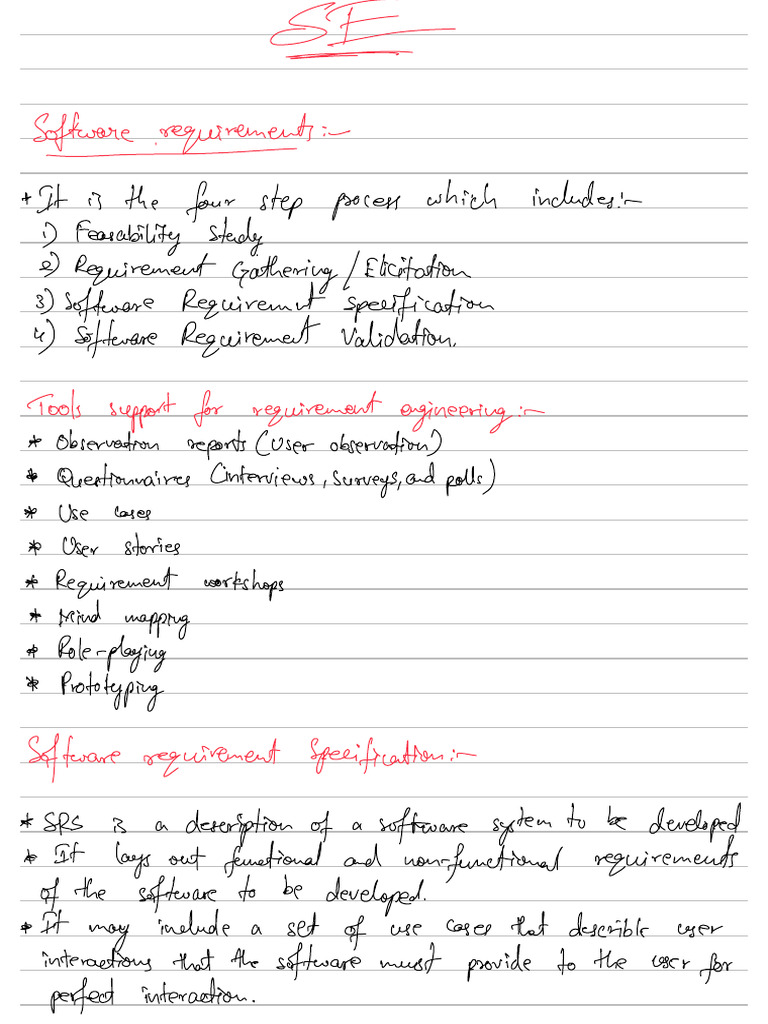 SE
Software requirements:-
* It is the four step process which includes:-
1) Feasability Study
2) Requirement Gathering / Elicitation
3) Software Requiremnt specification
4) Software Requirement Validation.
Tools support for requirement engineering:-
* Observation reports (User observation)
* Questionnaires (interviews, surveys, and polls)
* Use cases
* User stories
* Requirement workshops
* Mind mapping
* Role-playing
* Prototyping
Software requirement Specification:-
* SRS is a description of a software system to be developed
* It lays out functional and non-functional requirements
of the software to be developed.
* It may include a set of use cases that describle user
interactions that the software must provide to the user for
perfect interaction.